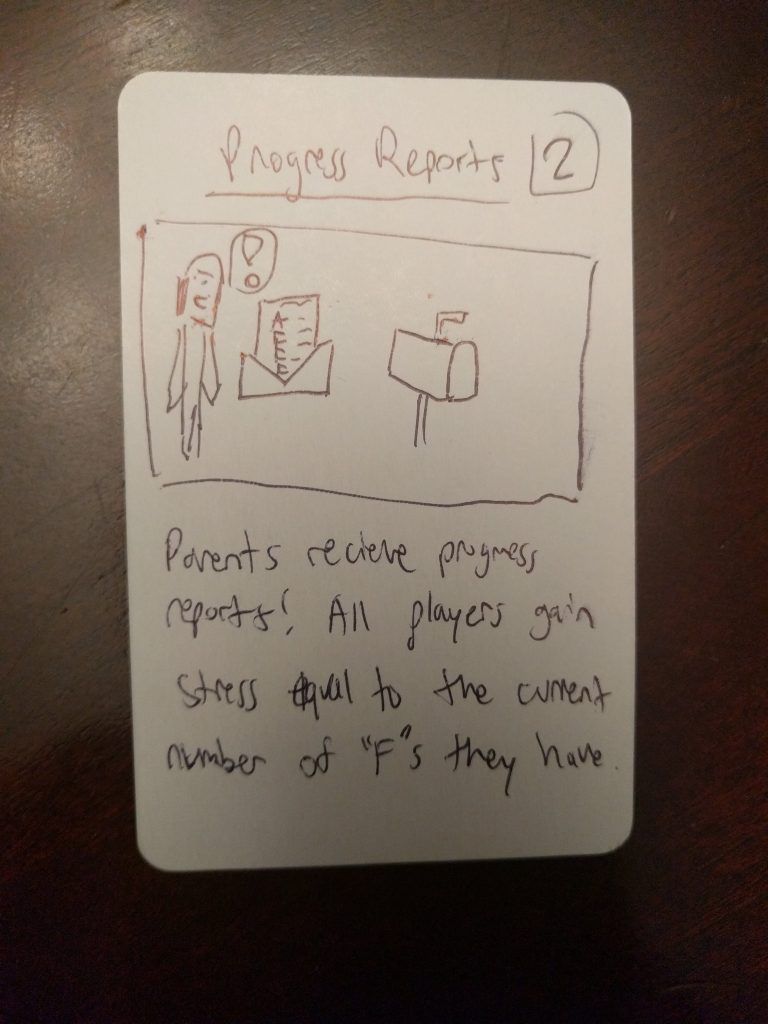 Progress Reports 2
Parents recieve progress
reports! All players gain
stress equal to the current
number of "F"s they have.